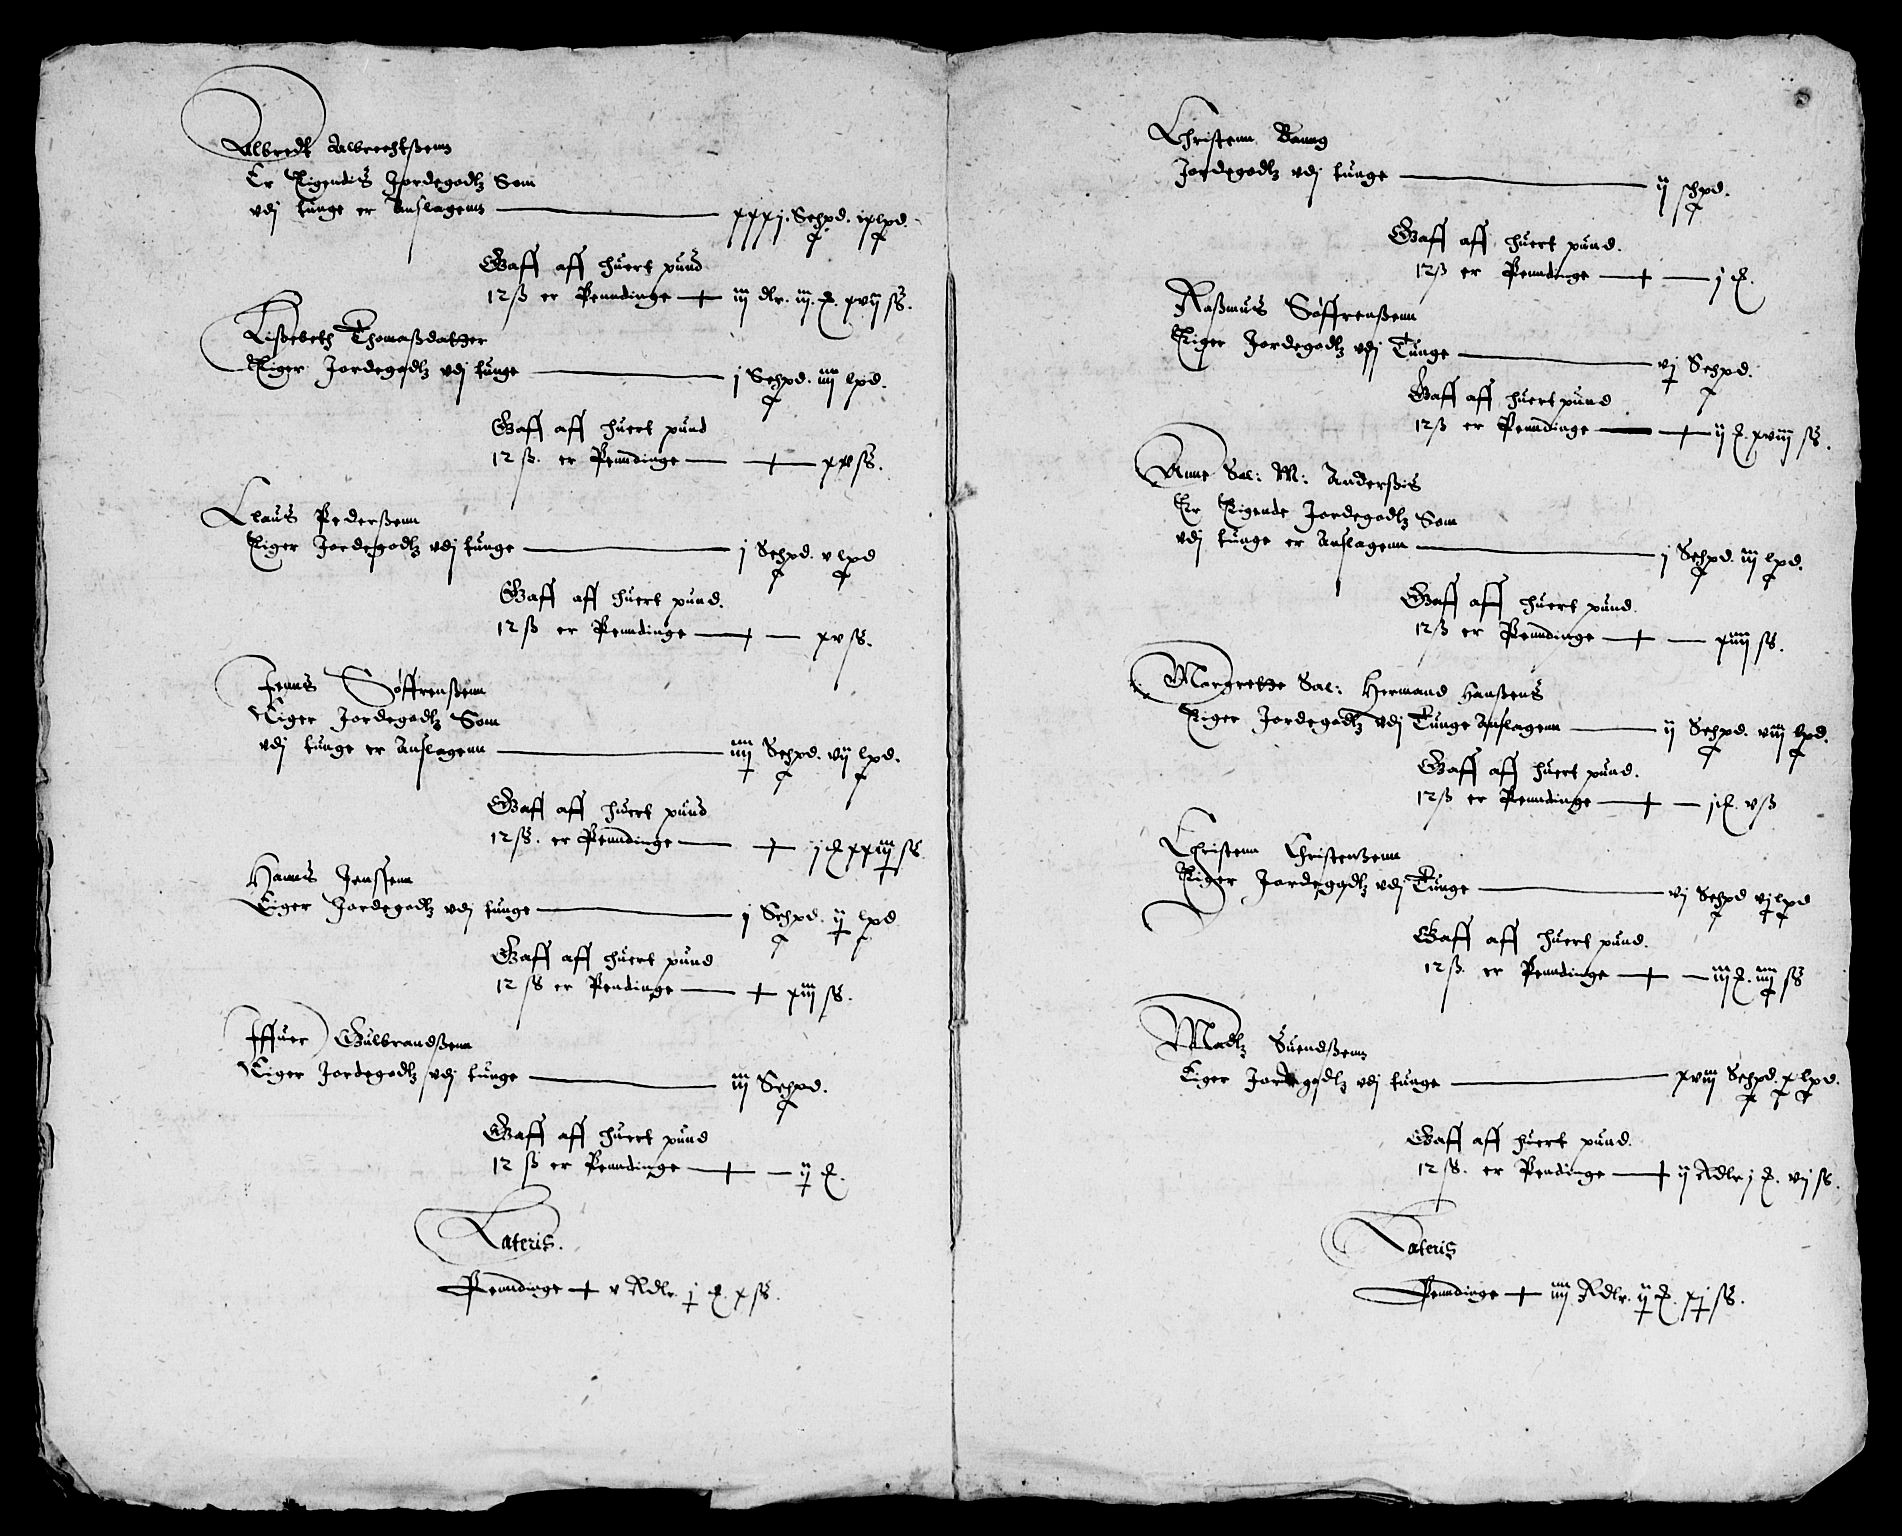 Albredt Albrechtßenn
Er Eigendis Jordegodtz Som
vdj tunge er Anslagenn — xxxj. Schpd. ix lpd.
Gaff aff huert pund
12 ß er Penndinge — iij dlr. iij. £. xvij ss.
Lisßebeth Thomaßdatter
Eiger Jordegodtz vdj tunge — j Schpd. iiij lpd.
Gaff aff huert pund
12 ß. er Penndinge — xvss.
Claus Pederßenn
Eiger Jordegodtz vdj tunge — j Schpd. v lpd
Gaff aff huert pund.
12 ß er Penndinge — xv ss.
Jenns Søffrenßenn
Eiger Jordegodtz Som
vdj tunge er Anslagenn — iiij Schpd. vij lpd.
Gaff aff huert pund
12 ss. er Penndinge — j £ xxiij ss
Hanns Jenssenn
Eiger Jordegodtz vdj tunge — j Schpd. ij lpd
Gaff aff huert pund
12 ss er Pendinge — xiij ss.
Iffuer Gulbrandßenn
Eiger Jordegodtz vdj tunge — iij Schpd.
Gaff aff huert pund
12 ß er Penndinge — ij £.
Lateris.
Penndinge — v Rdlr. j £. x ss.
Christenn Banng
Jordegodtz vdj tunge — ij schpd.
Gaff aff huert pund.
12 ß er Penndinge — j £.
Raßmus Søffrenßenn
Eiger Jordegodtz vdj Tunge — vj Schpd.
Gaff aff huert pund
12 ß er Penndinge — ij £. xviij ss.
Anne Sal: M: Anderßis
Er Eigende Jordegodtz Som
vdj tunge er Anslagenn — j Schpd. iij lpd.
Gaff aff huert pund.
12 ß er Penndinge — xiiij ss.
Margrette Sal: Hermand Hanßens
Eiger Jordegodtz vdj Tunge Anslagenn — ij Schpd. viij lpd.
Gaff aff huert pund.
12 ß er Penndinge — j £. v ß
Christenn Christenßenn
Eiger Jordegodtz vdj Tunge — vj Schpd vj lpd
Gaff aff huert pund.
12 ß. er Penndinge — iij £. iiij ss
Madtz Suendßenn
Eiger Jordegodtz vdj tunge — xviij Schpd. x lpd.
Gaff aff huert pund.
12 ss. er Pendinge — ij Rdlr j £. vij ss.
Lateris
Penndinge — iiij Rdlr. ij £. xj ss.